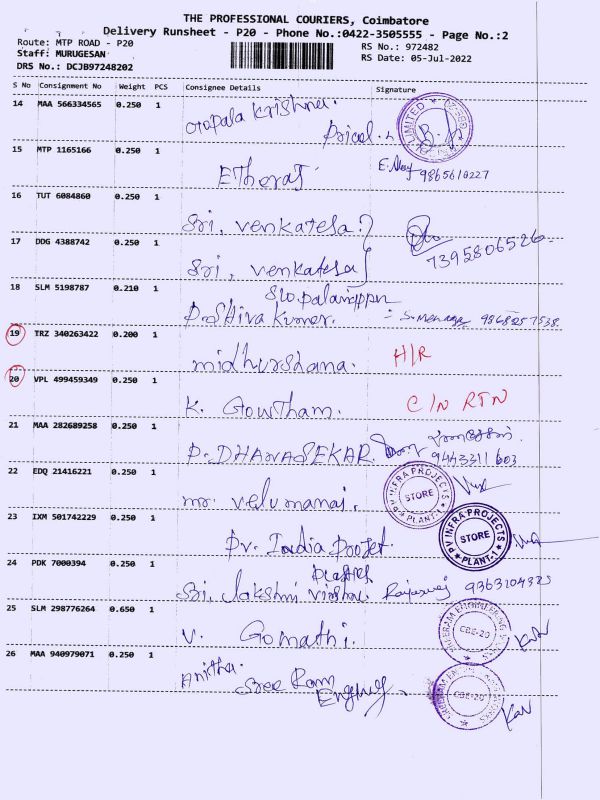 THE PROFESSIONAL COURIERS, Coimbatore
Delivery Runsheet - P20 - Phone No.:0422-3505555 - Page No.:2
Route: MTP ROAD - P20
RS No.: 972482
Staff: MURUGESAN
RS Date: 05-Jul-2022
DRS No.: DCJB97248202
S No Consignment No Weight PCS Consignee Details Signature
14 MAA 566334565 0.250 1 Gopala Krishna.
Pricol.
15 MTP 1165166 0.250 1 EtheraJ
9865610227
16 TUT 6084860 0.250 1 Sri. venkatesa
7395806526
17 DDG 4388742 0.250 1 Sri. venkatesa
18 SLM 5198787 0.210 1 S/o. palaniappan
P. Shiva Kumar.
19 TRZ 340263422 0.200 1 midhurshana. H/R
20 VPL 499459349 0.250 1 K. Gowtham. C/N RTN
21 MAA 282689258 0.250 1 P. DHANASEKAR.
9443311603
22 EDQ 21416221 0.250 1 mr. velumanai.
PV INFRA PROJECTS STORE PLANT-1
23 IXM 501742229 0.250 1 Pv. India Projet.
PV INFRA PROJECTS STORE PLANT-1
24 PDK 7000394 0.250 1 Plastics
Sri. lakshmi vishnu
25 SLM 298776264 0.650 1 V. Gomathi.
SREERAM ENGINEERING CBE-20
26 MAA 940979071 0.250 1 Anitha.
Sree Ram
CBE-20